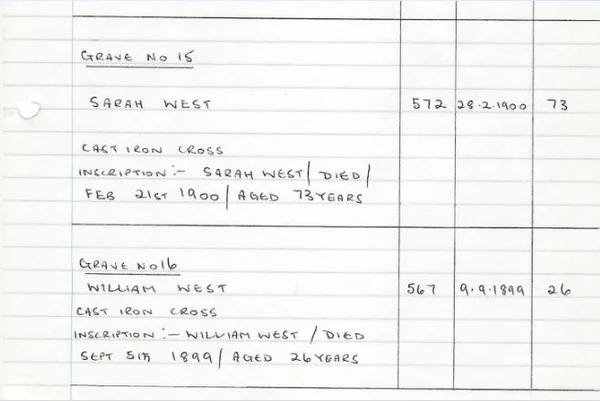 GRAVE NO 15
SARAH WEST 572 28.2.1900 73
CAST IRON CROSS
INSCRIPTION :- SARAH WEST / DIED /
FEB 21ST 1900 / AGED 73 YEARS
GRAVE NO 16
WILLIAM WEST 567 9.9.1899 26
CAST IRON CROSS
INSCRIPTION :- WILLIAM WEST / DIED
SEPT 5TH 1899 / AGED 26 YEARS